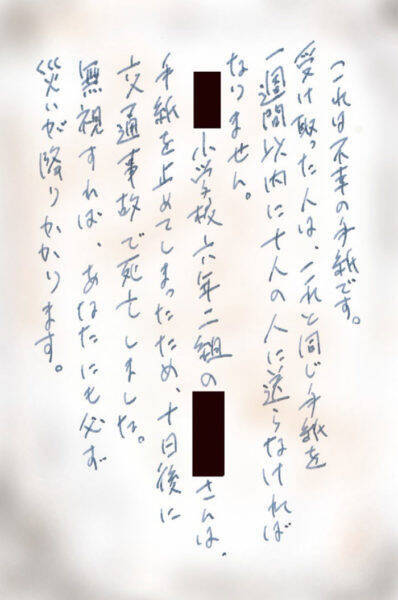 これは不幸の手紙です。
受け取った人は、これと同じ手紙を
一週間以内に十人の人に送らなければ
なりません。
小学校六年二組の さんは、
手紙を止めてしまったため、十日後に
交通事故で死亡しました。
無視すれば、あなたにも必ず
災いが降りかかります。